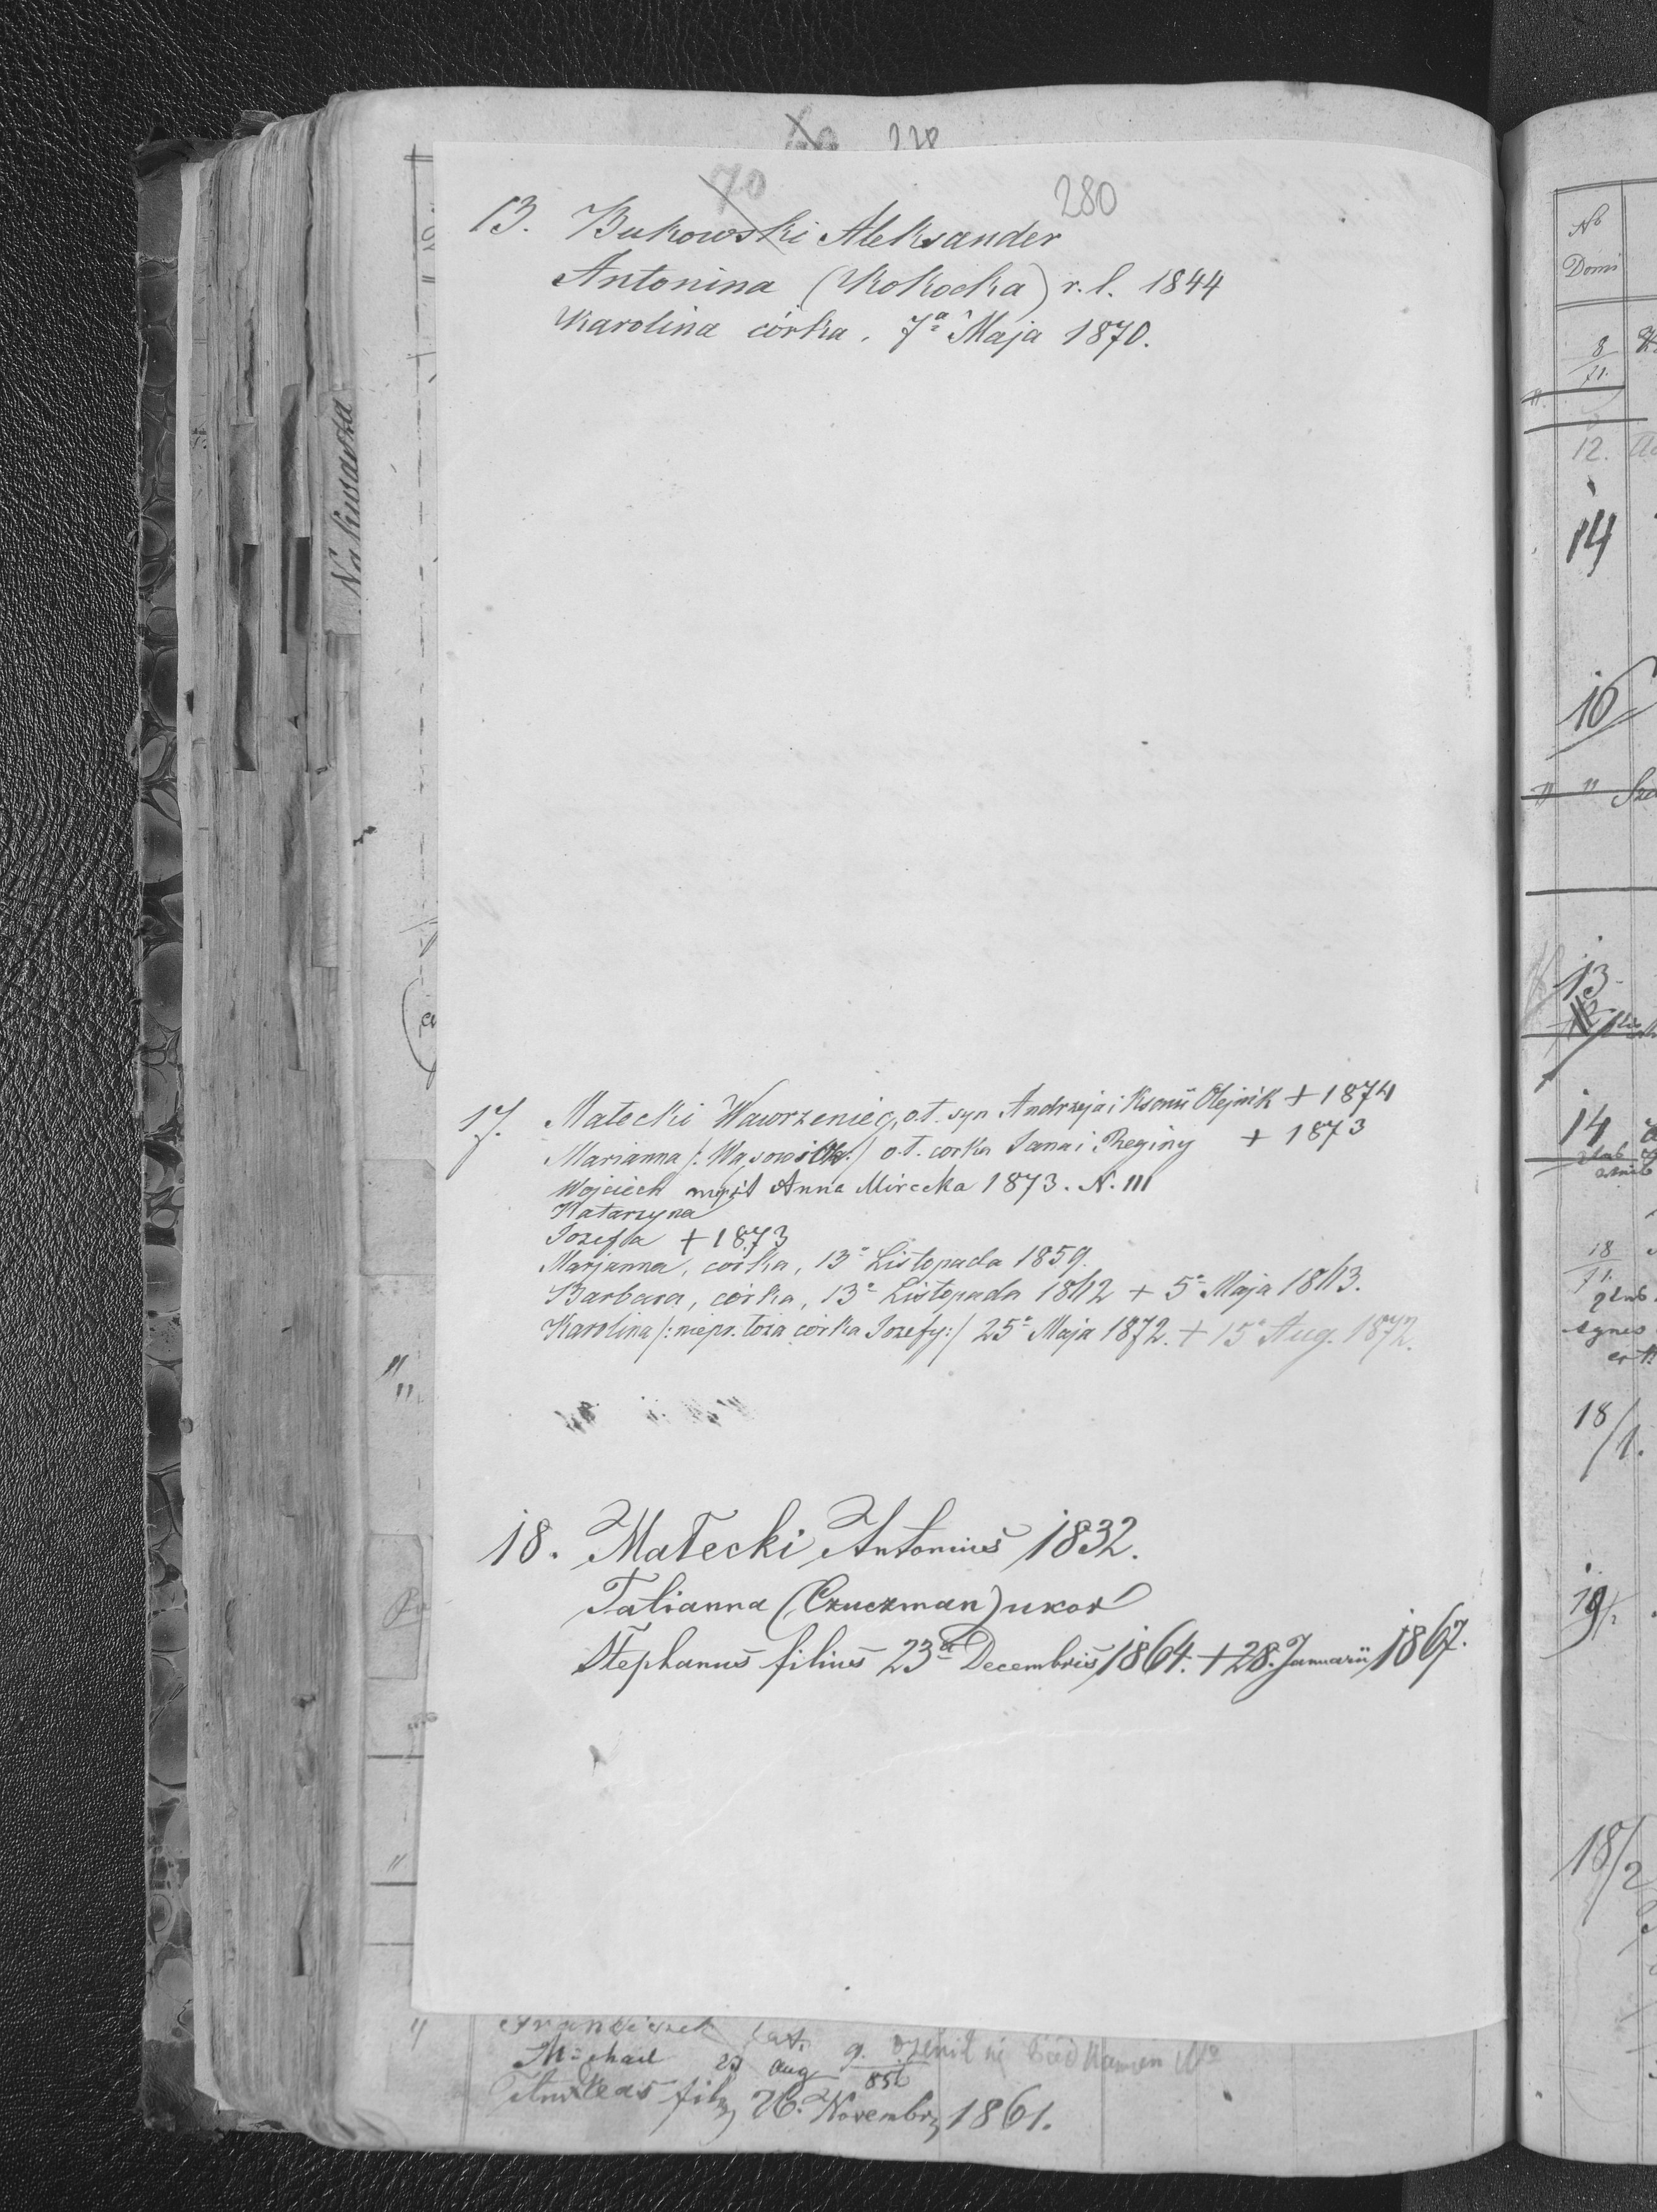 228
70 280
13. Bukowski Aleksander
Antonina (Kokocka) r. l. 1844
Karolina córka. 7ª Maja 1870.
17. Małecki Wawrzeniec, o.t. syn Andrzeja i Ksenii Olejnik + 1874
Marianna /: Wąsowicz :/ o.t. corka Jana i Reginy + 1873
Wojciech mąż Anna Mirecka 1873. N. 111
Katarzyna
Jozefa + 1873
Marjanna, córka, 13º Listopada 1859.
Barbara, córka, 13º Listopada 1862 + 5º Maja 1863.
Karolina /: niepr. łoża córka Jozefy :/ 25º Maja 1872. + 15º Aug. 1872.
18. Małecki Antonius 1832.
Tatianna (Czuczman) uxor
Stephanus filius 23ª Decembris 1864. + 28. Januarii 1867.
Franciszek lat. 9. ożenił
Michael 23 aug 856
Andreas 26. Novembr 1861.
Nº
Domi
8
71.
12.
14
16
13
14
18
71.
18/1.
19/2
18/2